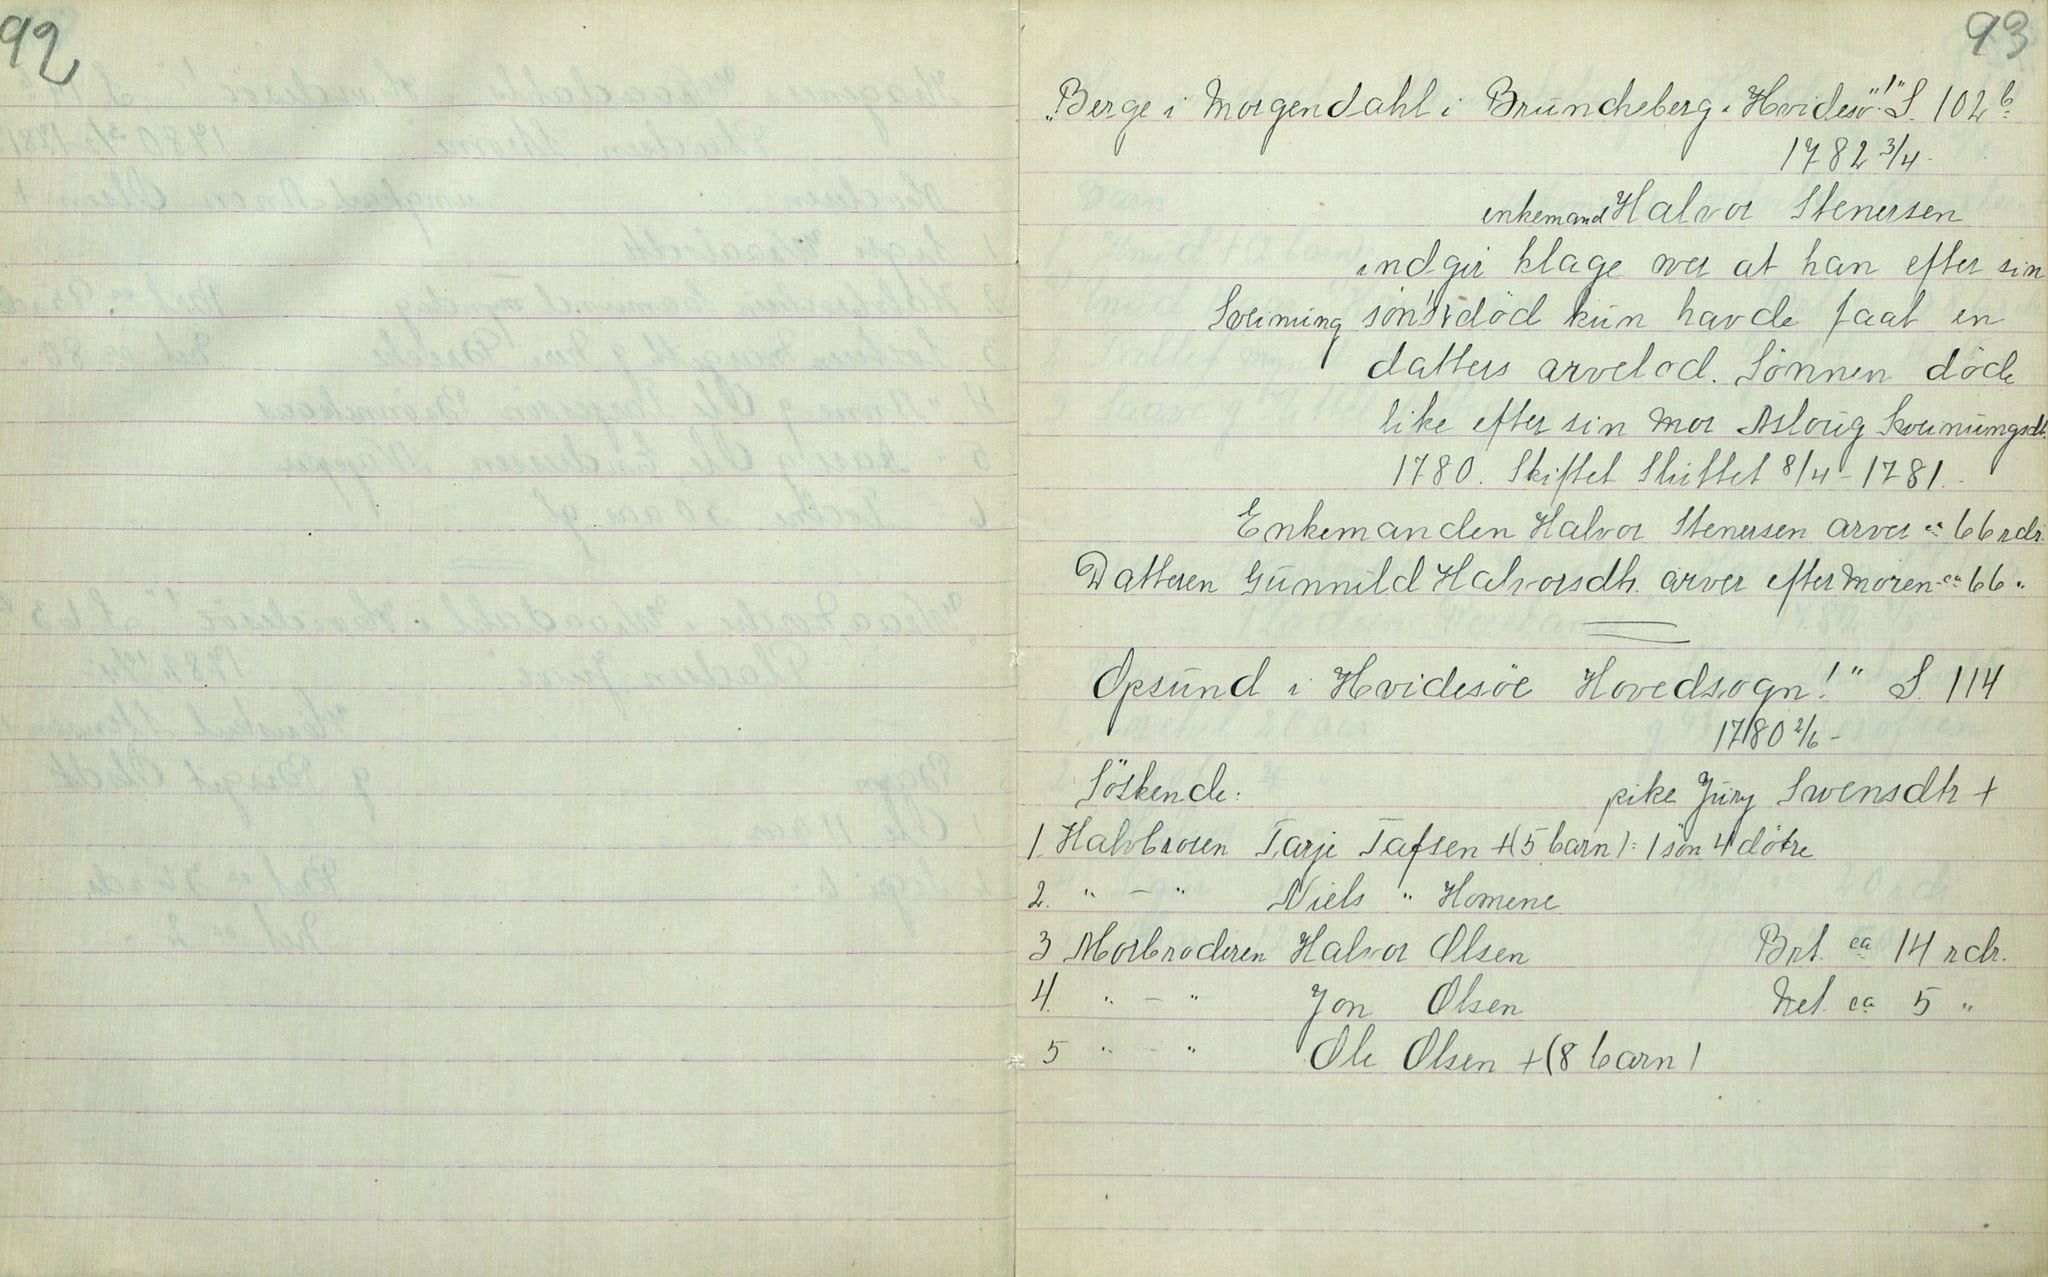 92
93
„Berge i Morgendahl i Brüncheberg i Hvidesö"!" S. 102 b
1782 3/4 -
enkemand Halvor Stenersen
indgir klage over at han efter sin
Sveinung sön's död kün havde faat en
datters arvelod. Sönnen döde
like efter sin mor Asloug Sveinungsdtr.
1780. Skiftet Sluttet 8/4 - 1781. -
Enkemanden Halvor Stenersen arver ca 66 rdr.
Datteren Günnild Halvorsdtr. arver efter moren ca 66 "
Opsünd i Hvidesöe Hovedsogn!" S. 114
1780 2/6 -
Söskende: pike Jüry Svensdtr +
1. Halvbroren Tarje Tafsen + (5 barn): 1 sön 4 dötre
2. " - " Niels " Homene
3 Morbroderen Halvor Olsen Brt. ca 14 rdr.
4. " - " Jon Olsen Net. ca 5 "
5 " - " Ole Olsen + (8 barn)